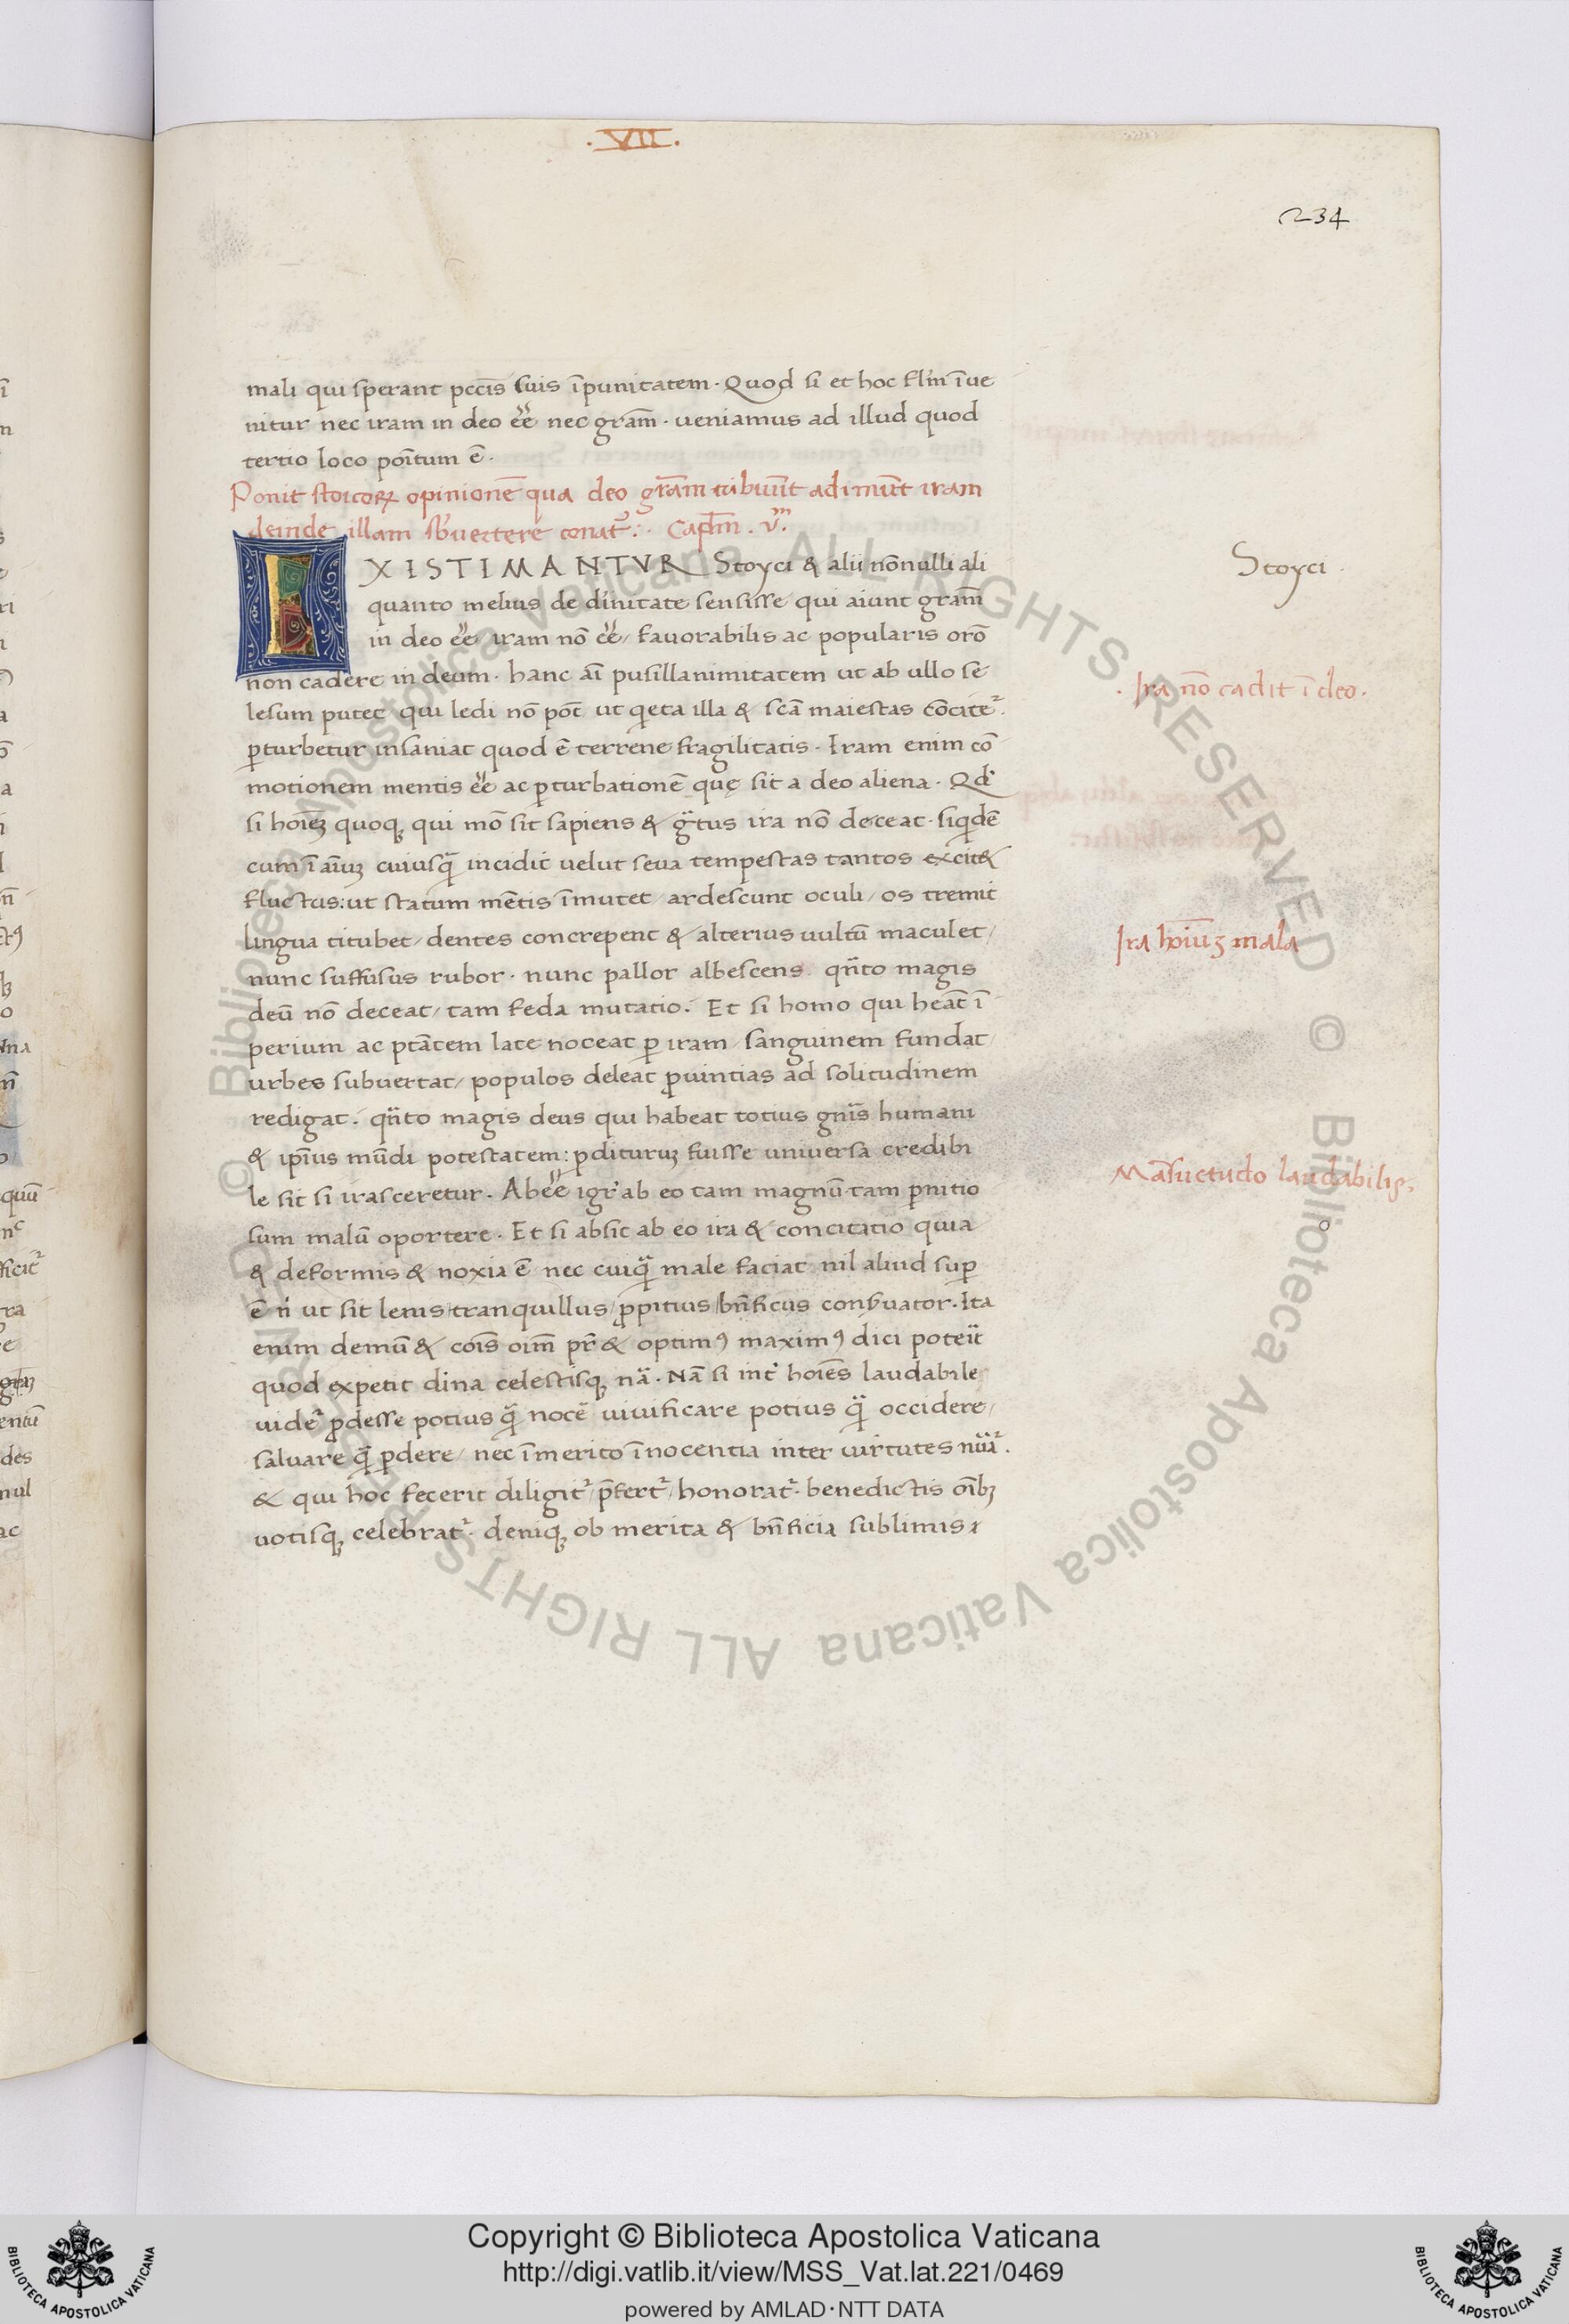 .VII.
234
mali qui sperant pcc̄is suis ī̄punitatem. Quod si et hoc fl̄m ī̄ue
nitur nec iram in deo ee̋ nec gr̄am. ueniamus ad illud quod
tertio loco poītum ē.
Ponit stoicoꝝ opinionē qua deo gr̄am tribuūt adimūt iram
deinde illam sb̄uertere conat᷑. Capl̄m. v.ᵐ
EXISTIMANTVR Stoyci & alii nōnulli ali
quanto melius de diīnitate sensisse qui aiunt gram̄
in deo ee̋/ iram nō ee̋/ fauorabilis ac popularis orō
non cadere in deum. hanc aī pusillanimitatem ut ab ullo se
lesum putet qui ledi nō pōt ut qͥeta illa & scā maiestas cōcite᷑.
ꝑturbetur insaniat quod ē terrene fragilitatis. Iram enim cō
motionem mentis ee̋ ac ꝑturbationē quę sit a deo aliena. Qd̓
si hoīeꝫ quoqꝫ qui mō sit sapiens & gͣtus ira nō deceat. siqͥdē
cum ī aīuꝫ cuiusqͣ̄ incidit uelut seua tempestas tantos excit&
fluctus: ut statum mētis īmutet/ ardescunt oculi/ os tremit
lingua titubet/ dentes concrepent & alterius uultū maculet/
nunc suffusus rubor. nunc pallor albescens. qn̄to magis
deū nō deceat/ tam feda mutatio. Et si homo qui heāt ī
perium ac ptātem late noceat ꝑ iram/ sanguinem fundat/
urbes subuertat/ populos deleat ꝓuintias ad solitudinem
redigat. qn̄to magis deus qui habeat totius gn̄is humani
& ip̄ius mūdi potestatem: ꝑdituruꝫ fuisse uniuersa credibi
le sit si irasceretur. Abee̋ igr̓ ab eo tam magnū tam ꝑnitio
sum malū oportere. Et si absit ab eo ira & concitatio quia
& deformis & noxia ē nec cuiqͣ̄ male faciat nil aliud suꝑ
ē nͥ ut sit lenis/ tranquillus/ ꝓpitius/ bn̄ficus conẜuator. Ita
enim demū & coīs oīm pr̄ & optimꝰ maximꝰ dici poteit̄
quod expetit diīna celestisqꝫ nā. Nā si int̓ hoīes laudabile
uide᷑ ꝓdesse potius qͣ̄ nocē uiuificare potius qͣ̄ occidere/
saluare qͣ̄ ꝑdere/ nec īmerito īnocentia inter uirtutes nūa᷑.
& qui hoc fecerit diligit᷑/ p̄fert᷑/ honorat᷑. benedictis oībꝫ
uotisqꝫ celebrat᷑. deniqꝫ ob merita & bn̄ficia sublimis
Stoyci
. Ira nō cadit ī deo.
Ira hoīuꝫ mala
Māsuetudo laudabilis.
Copyright © Biblioteca Apostolica Vaticana
http://digi.vatlib.it/view/MSS_Vat.lat.221/0469
powered by AMLAD·NTT DATA
BIBLIOTECA APOSTOLICA VATICANA
BIBLIOTECA APOSTOLICA VATICANA
© Biblioteca Apostolica Vaticana ALL RIGHTS RESERVED © Biblioteca Apostolica Vaticana ALL RIGHTS RESERVED